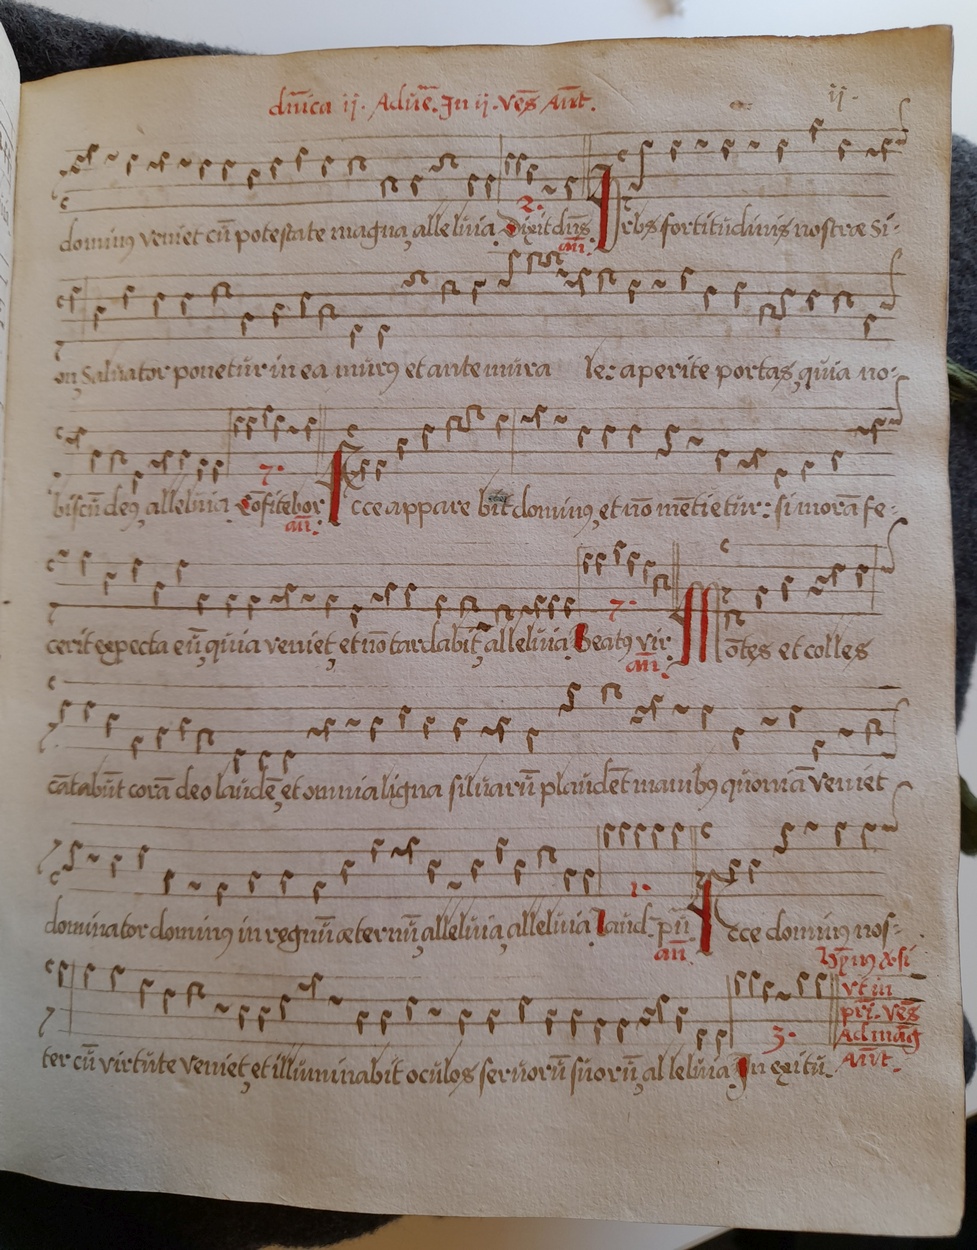 dñica ij. Aduē. In ij. Ves̄ Añt. ij.
dominꝰ veniet cū potestate magna, alleluia. 2. Dixit dñs. añ. Vrbs fortitudinis nostræ Si-
on, Saluator ponetur in ea murꝰ et ante mura le: aperite portas, quia no-
biscū deꝰ, alleluia. 7. Cōfitebor añ. Ecce appare bit dominꝰ, et nō mētietur: si morā fe-
cerit expecta eū, quia veniet, et nō tardabit, alleluia. 7. Beatꝰ vir. añ. Mōtes et colles
cātabūt corā deo laudē, et omnia ligna siluarū plaudēt manibꝰ quoniā veniet
dominator dominꝰ in regnū æternū, alleluia, alleluia. 1. Laud. pū añ. Ecce dominꝰ nos-
ter cū virtute veniet, et illuminabit oculos seruorū suorū, alleluia. 3. In exitū.
vt in
pri. Ves̄
Ad mag̃
Añt.